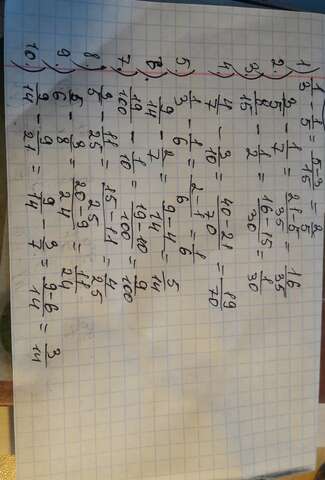 1.) 1/3 - 1/5 = 5-3/15 = 2/5
2.) 3/5 - 1/7 = 21-5/35 = 16/35
3.) 8/15 - 1/2 = 16-15/30 = 1/30
4.) 4/7 - 3/10 = 40-21/70 = 19/70
5.) 1/3 - 1/6 = 2-1/6 = 1/6
6.) 9/14 - 2/7 = 9-4/14 = 5/14
7.) 19/100 - 1/10 = 19-10/100 = 9/100
8.) 3/5 - 11/25 = 15-11/25 = 4/25
9.) 5/6 - 3/8 = 20-9/24 = 11/24
10.) 9/14 - 9/21 = 9/14 - 3/7 = 9-6/14 = 3/14